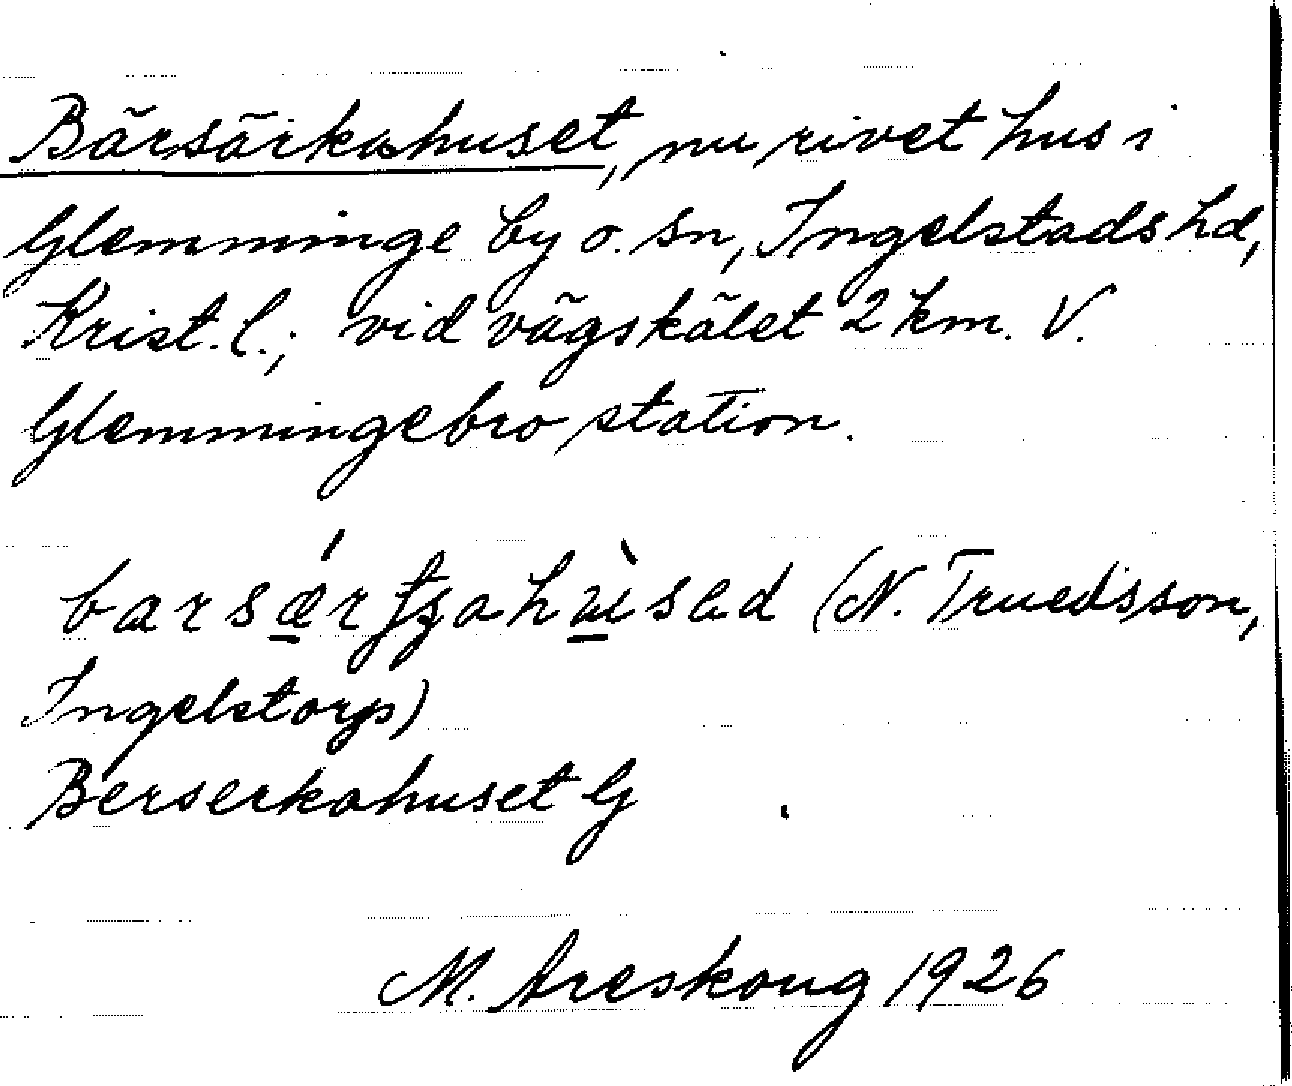 Bärsärkahuset, nu rivet hus i
Glemminge by o. sn, Ingelstads hd,
Krist. l.; vid vägskälet 2 km. V.
Glemmingebro station.
barsærʈʂahùsad (N. Truedsson,
Ingelstorp)
Berserkahuset G
M. Areskoug 1926